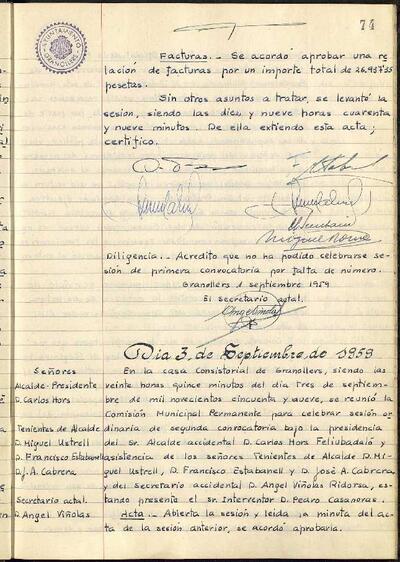 74
AYUNTAMIENTO
GRANOLLERS
Facturas.- Se acordó aprobar una re
lación de facturas por un importe total de 26.937'35
pesetas.
Sin otros asuntos a tratar, se levantó la
sesión, siendo las diez y nueve horas cuarenta
y nueve minutos. De ella extiendo esta acta;
certifico.
Diligencia.- Acredito que no ha podido celebrarse se-
sión de primera convocatoria por falta de número.
Granollers 1 septiembre 1959
El secretario actal.
Dia 3, de Septiembre, de 1959
En la casa Consistorial de Granollers, siendo las
veinte horas quince minutos del día tres de septiem-
bre de mil novecientos cincuenta y nueve, se reunió la
Comisión Municipal Permanente para celebrar sesión or-
dinaria de segunda convocatoria bajo la presidencia
del Sr. Alcalde accidental D. Carlos Hors Feliubadaló y
asistencia de los señores Tenientes de Alcalde D. Mi-
guel Ustrell, D. Francisco Estabanell y D. José A. Cabrera,
y del Secretario accidental D. Angel Viñolas Ridorsa, es-
tando presente el Sr. Interventor D. Pedro Casanovas.
Acta.- Abierta la sesión y leida la minuta del
acta de la sesión anterior, se acordó aprobarla.
Señores
Alcalde-Presidente
D. Carlos Hors
Tenientes de Alcalde
D. Miguel Ustrell
D. Francisco Estabanell
D. J. A. Cabrera
Secretario actal.
D. Angel Viñolas